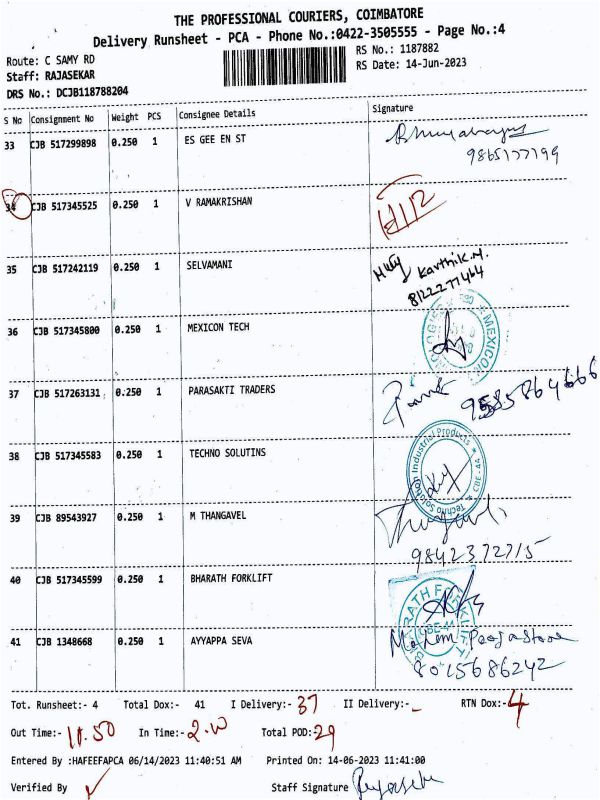 THE PROFESSIONAL COURIERS, COIMBATORE
Delivery Runsheet - PCA - Phone No.:0422-3505555 - Page No.:4
Route: C SAMY RD RS No.: 1187882
Staff: RAJASEKAR RS Date: 14-Jun-2023
DRS No.: DCJB118788204
S No Consignment No Weight PCS Consignee Details Signature
33 CJB 517299898 0.250 1 ES GEE EN ST
9865177199
34 CJB 517345525 0.250 1 V RAMAKRISHAN
35 CJB 517242119 0.250 1 SELVAMANI
Karthik.M.
8122277464
36 CJB 517345800 0.250 1 MEXICON TECH
MEXICON
37 CJB 517263131 0.250 1 PARASAKTI TRADERS
9585864666
38 CJB 517345583 0.250 1 TECHNO SOLUTINS
Techno Solution Industrial Products * CBE-44 *
39 CJB 89543927 0.250 1 M THANGAVEL
9842372715
40 CJB 517345599 0.250 1 BHARATH FORKLIFT
41 CJB 1348668 0.250 1 AYYAPPA SEVA
8015686242
Tot. Runsheet:- 4 Total Dox:- 41 I Delivery:- 37 II Delivery:- - RTN Dox:- 4
Out Time:- 11.50 In Time:- Total POD:- 29
Entered By :HAFEEFAPCA 06/14/2023 11:40:51 AM Printed On: 14-06-2023 11:41:00
Verified By Staff Signature